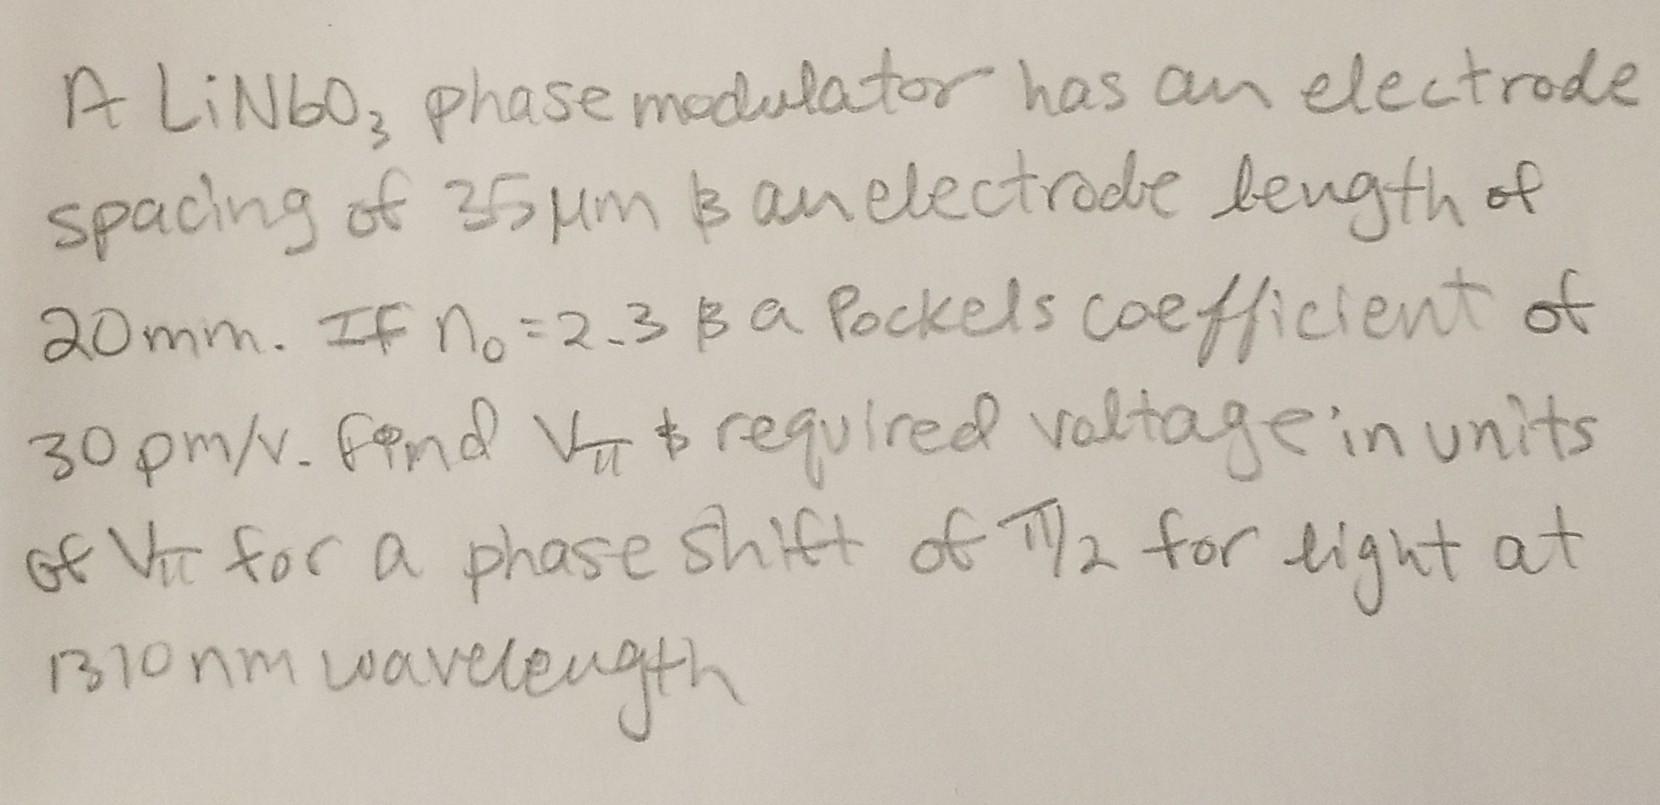 A LiNbO₃ phase modulator has an electrode
spacing of 35 μm & an electrode length of
20mm. If n₀ = 2.3 & a Pockels coefficient of
30 pm/v. Find Vπ & required voltage in units
of Vπ for a phase shift of π/2 for light at
1310 nm wavelength